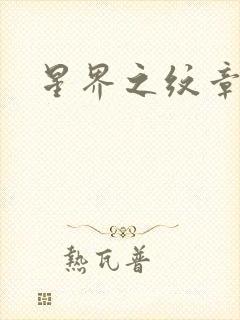 星界之纹章
熱瓦普